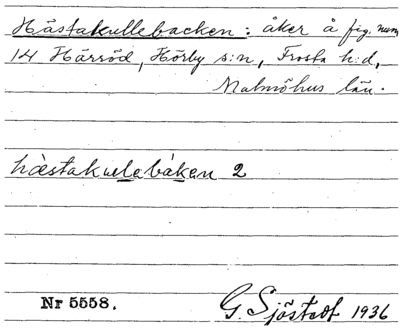 Hästakullebacken: åker å fig. num
14 Härröd, Hörby s:n, Frosta h:d,
Malmöhus län.
hàestakuelebáken 2
Nr 5558.
G. Sjöstedt 1936